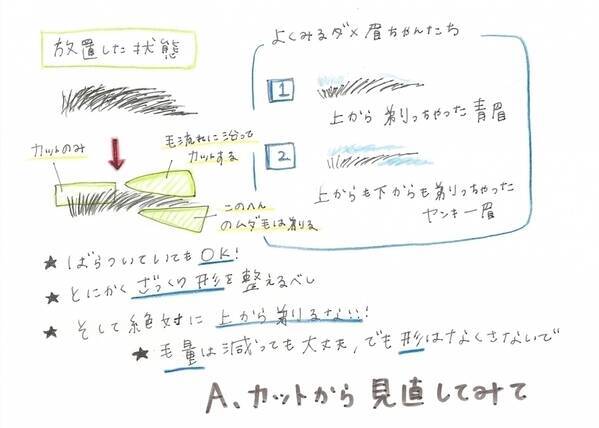 放置した状態
カットのみ
毛流れに沿って
カットする
このへん
のムダ毛は剃る
よくみるダメ眉ちゃんたち
1
上から剃りっちゃった青眉
2
上からも下からも剃りっちゃった
ヤンキー眉
★ ばらついていてもOK!
★ とにかくざっくり形を整えるべし
★ そして絶対に上から剃るない!!
★ 毛量は減っても大丈夫、でも形はなくさないで
A、カットから見直してみて